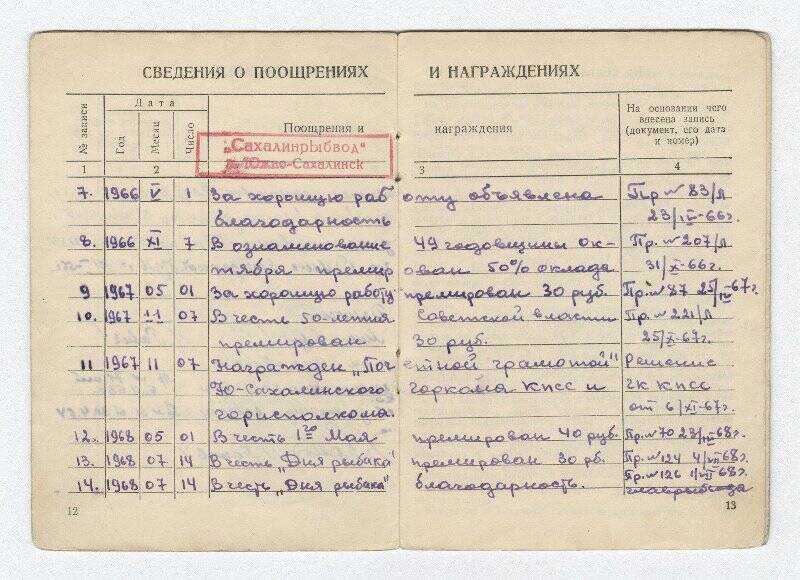 СВЕДЕНИЯ О ПООЩРЕНИЯХ И НАГРАЖДЕНИЯХ
№ записи
Дата
Год
Месяц
Число
Поощрения и награждения
На основании чего
внесена запись
(документ, его дата
и номер)
„Сахалинрыбвод"
Южно-Сахалинск
1 2 3 4
7. 1966 V 1 За хорошую работу объявлена Пр. № 83/л
благодарность 23/IV-66г.
8. 1966 XI 7 В ознаменование 49 годовщины Ок- Пр. № 207/л
тября премирован 50% оклада 31/X-66г.
9 1967 05 01 За хорошую работу премирован 30 руб. Пр. № 87 25/IV-67г.
10. 1967 11 07 В честь 50-летия Советской власти Пр. № 221/л
премирован 30 руб. 25/X-67г.
11 1967 11 07 Награжден „Почётной грамотой" Решение
Ю-Сахалинского горкома КПСС и ГК КПСС
горисполкома. от 6/XI-67г.
12. 1968 05 01 В честь 1го Мая премирован 40 руб. Пр. № 70 23/IV-68г.
13. 1968 07 14 В честь „Дня рыбака" премирован 30 рб. Пр. № 124 4/VII-68г.
14. 1968 07 14 В честь „Дня рыбака" благодарность. Пр. № 126 1/VII-68г.
главрыбвода
12 13